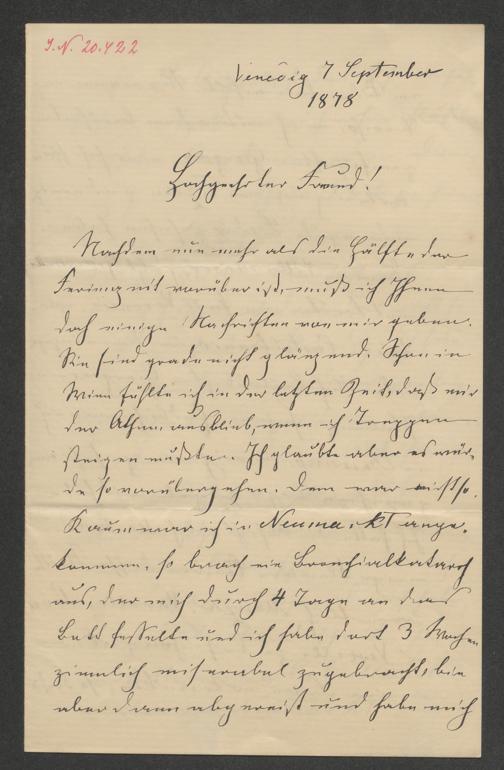 I.N. 20.422
Venedig 7 September
1878
Hochgeehrter Freund!
Nachdem nun mehr als die Hälfte der
Ferienzeit vorüber ist, muß ich Ihnen
doch einige Nachrichten von mir geben.
Sie sind grade nicht glänzend. Schon in
Wien fühlte ich in der letzten Zeit, daß mir
der Athem ausblieb, wenn ich Treppen
steigen mußte. Ich glaubte aber es wür-
de so vorübergehen. Dem war nicht so.
Kaum war ich in Neumarkt ange-
kommen, so brach ein Bronchialkatarrh
aus, der mich durch 4 Tage an das
Bett fesselte und ich habe dort 3 Wochen
ziemlich miserabel zugebracht, bin
aber dann abgereist und habe mich